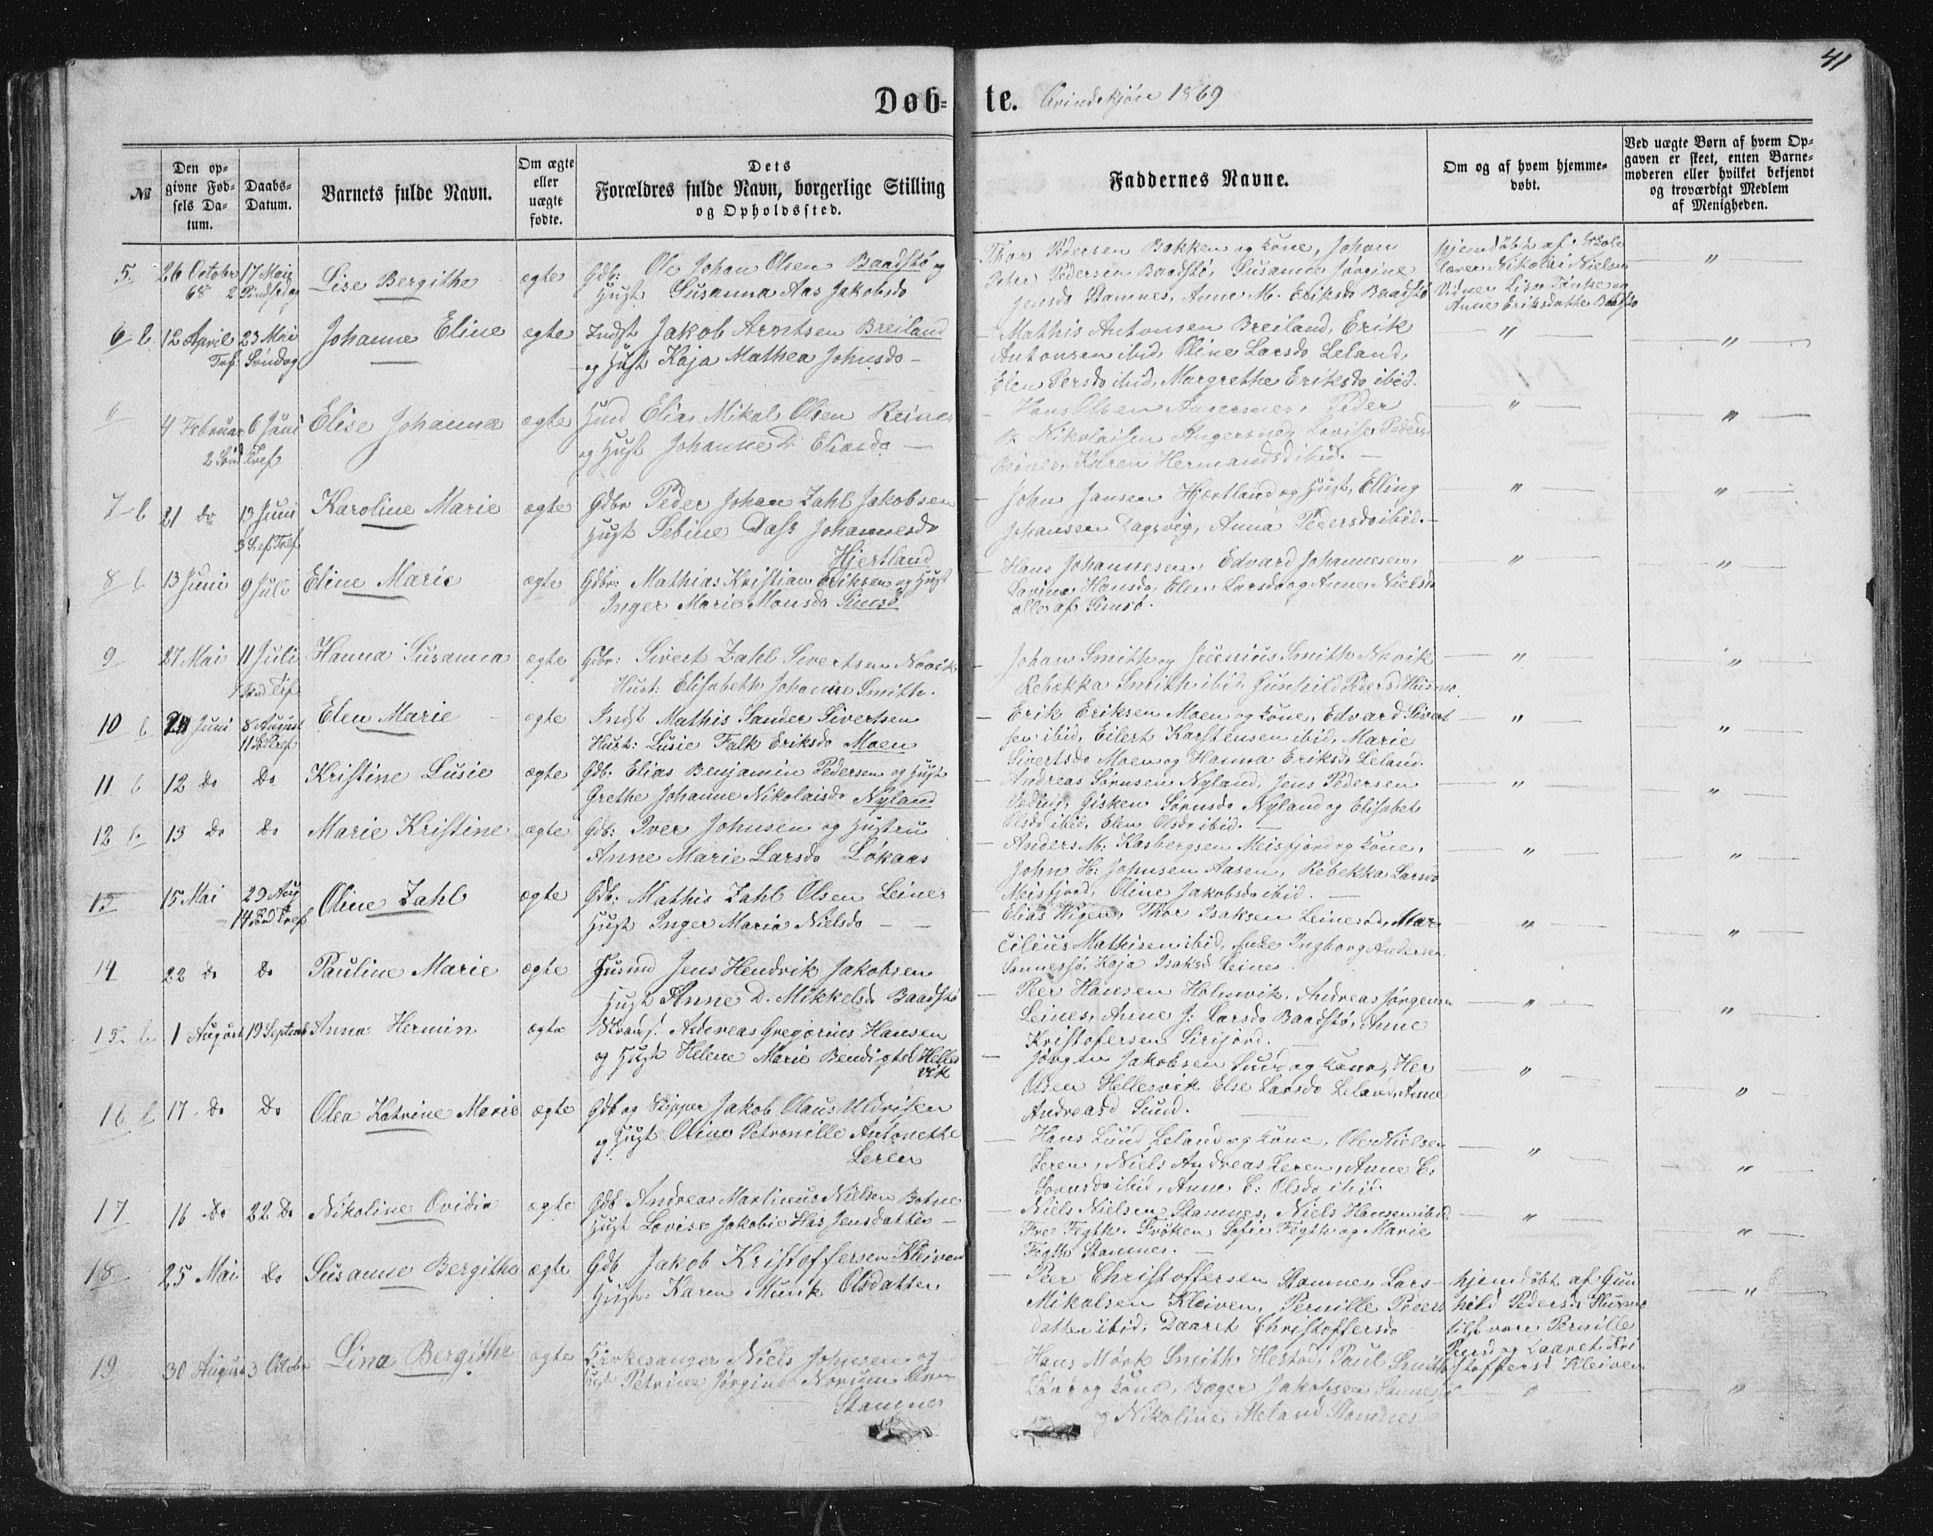 41
Døb-te. Qvindekjøn 1869
№
Den opgivne Fødsels Datum.
Daabs-Datum.
Barnets fulde Navn.
Om ægte eller uægte fødte.
Dets Forældres fulde Navn, borgerlige Stilling og Opholdssted.
Faddernes Navne.
Om og af hvem hjemmedøbt.
Ved uægte Børn af hvem Opgaven er skeet, enten Barnemoderen eller hvilket bekjendt og troværdigt Medlem af Menigheden.
5 26 Octobr 68 17 Mai 2 Pindsedag Lise Bergithe ægte Gdb: Ole Johan Olsen Baadstø og
Hust Susanna Aas Jakobsdo
Thor Pedersen Bakken og Kone, Johan
Peter Pedersen Baadstø, Susanna Jørgine
Jensdo Stamnes, Anne M. Eriksdo Baadstø
hjemdøbt af Skole
lærer Nikolai Nielsen
Vidner Lise
Anne Eriksdatte Baadstø
6 b. 12 April 23 Mai Tref Søndag Johanne Eline ægte Indst Jakob Arntsen Breiland
og Hust Kaja Mathea Johnsdo —
Mathis Antonsen Breiland, Erik
Antonsen ibid, Oline Larsdo Leland,
Elen Persdo ibid, Margrethe Eriksdo ibid.
4 Februar 6 Juni 2 Sønd Tref Elise Johanna ægte Huusmd Elias Mikal Olsen Reines
og Hust Johanne D Eliasdo —
Hans Olsen Angersnes, Peder
B. Nikolaisen Angersnes, Lovise Peders
Karen Hermandsd ibid. —
7 b 21 do 13 Juni 3 S. ef Tref Karoline Marie ægte Gdbr Peder Johan Zahl Jakobsen
Hust Sebine Dass Johannesdo
Hjertland
John Jansen Hjertland og Hust, Elling
Johansen Dagsvig, Anna Pedersdo ibid. —
8 b 13 Juni 9 Juli Eline Marie ægte Gdbr: Mathias Kristian Eriksen og Hust
Inger Marie Monsdo Simsø
Hans Johannesen, Edvard Johannesen,
Lavina Hansdo, Elen Larsdo og Anne Nielsdo
alle af Simsø.
9 27 Mai 11 Juli Hanna Susanna ægte Gdbr: Sivert Zahl Sivertsen Novik
Hust: Elisabeth Johanne Smith.
Johan Smith og Jeenius Smith Novik
Rebekka Smith ibid, Gunhild Pedersd Husmo
10 b Juni 8 August 11 S. e Tref Elen Marie ægte Indst Mathis Sander Sivertsen
Hust: Lusie Falk Eriksdo Moen
Erik Eriksen Moen og Kone, Edvard Sivert
sen ibid, Eilert Karstensen ibid, Marie
Sivertsdo Moen og Hanna Eriksdo Leland.
11 b 12 do Do Kristine Lusie ægte Gdb: Elias Benjamin Pedersen og Hust
Grethe Johanne Nikolaisdo Nyland
Andreas Sørnsen Nyland, Jens Pedersen
Gisken Sørnsdo Nyland og Elisabet
Olsdo ibid, Elen Olsdo ibid. —
12 b 13 Do Do Marie Kristine ægte Gdb: Iver Johnsen og Hustru
Anne Marie Larsdo Løkaas
Anders M: Kasbergsen Meisfjord og Kone,
John H: Johnsen Aasen, Rebekka Larsdo
Meisfjord, Oline Jakobsdo ibid. —
13 15 Mai 29 Aug Oline Zahl ægte Gdb: Mathis Zahl Olsen Leines
Hust Inger Maria Nielsdo — —
Elias Wigen, Thor Isaksen Leinesod, Mar-
cilius Mathisen ibid, Enke Ingborg Andersen
Sannesjø, Kaja Isaksd Leines.
14 22 do Do Pauline Marie ægte Husmd Jens Hendrik Jakobsen
Hust Anne D. Mikkelsdo Baadstø
Peer Hansen Holmvik, Andreas Jørgensen
Leines, Anne J: Larsdo Baadstø, Anne
Kristofersen Sirijord. —
15 b 1 August 19 Septemb Anna Hermin ægte Strands: Andreas Gregorius Hansen
og Hust Helene Marie Bendigted Helles
vik
Jørgen Jakobsen Sund og Kone, Her
Olsen Hellesvik Else Larsdo Leland, Anne
Andreasd Sund.
16 b 17 Do Do Olea Katrine Marie ægte Gdb og Skipper Jakob Olaus Uldriksen
og Hust Oline Petronille Antonette
Leren
Hans Lund Leland og Kone, Ole Nielsen
Leren, Niels Andreas Leren, Anne C:
Sørnsdo ibid, Anne C: Olsdo ibid.
17 16 Do 22 Do Nikoline Ovidia ægte Gdb Andreas Martinus Nielsen Botne
Hust Lovise Jakobie Has Jensdatter —
Niels Nielsen Stamnes, Niels Hansen ibid,
Frue Fegth, Frøken Sofie Fegth og Marie
Fegth Stamnes. —
18 25 Mai Do Susanne Bergithe ægte Gdb Jakob Kristoffersen Kleiven
Hust: Karen Munk Olsdatter
Peer Christoffersen Stamnes, Lars
Mikalsen Kleiven, Pernille Peders
datter ibid, Daaret Christoffersdo
hjemdøbt af Gun
hild Pedersd Husmo
tilst vare Pernille
Pedersd og Daaret Kri
stoffersd Kleiven
19 30 August 3 Octobr Lina Bergithe ægte Kirkesanger Niels Johnsen og
Hust Petrine Jørgine Norum
Stamnes
Hans Mørk Smith Hestad, Paul Smith
og Kone, Bæger Jakobsen Sannesjø
og Nikoline Meland Stamnes